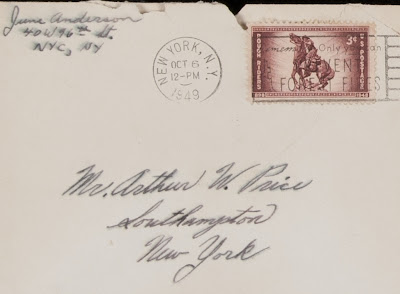 June Anderson
40 W 96th St.
NYC, NY
NEW YORK, N.Y.
OCT 6
12-PM
1949
ROUGH RIDERS
3¢
US POSTAGE
1898
1948
Only you can
PREVENT
FOREST FIRES
Mr. Arthur W. Price
Southampton
New York